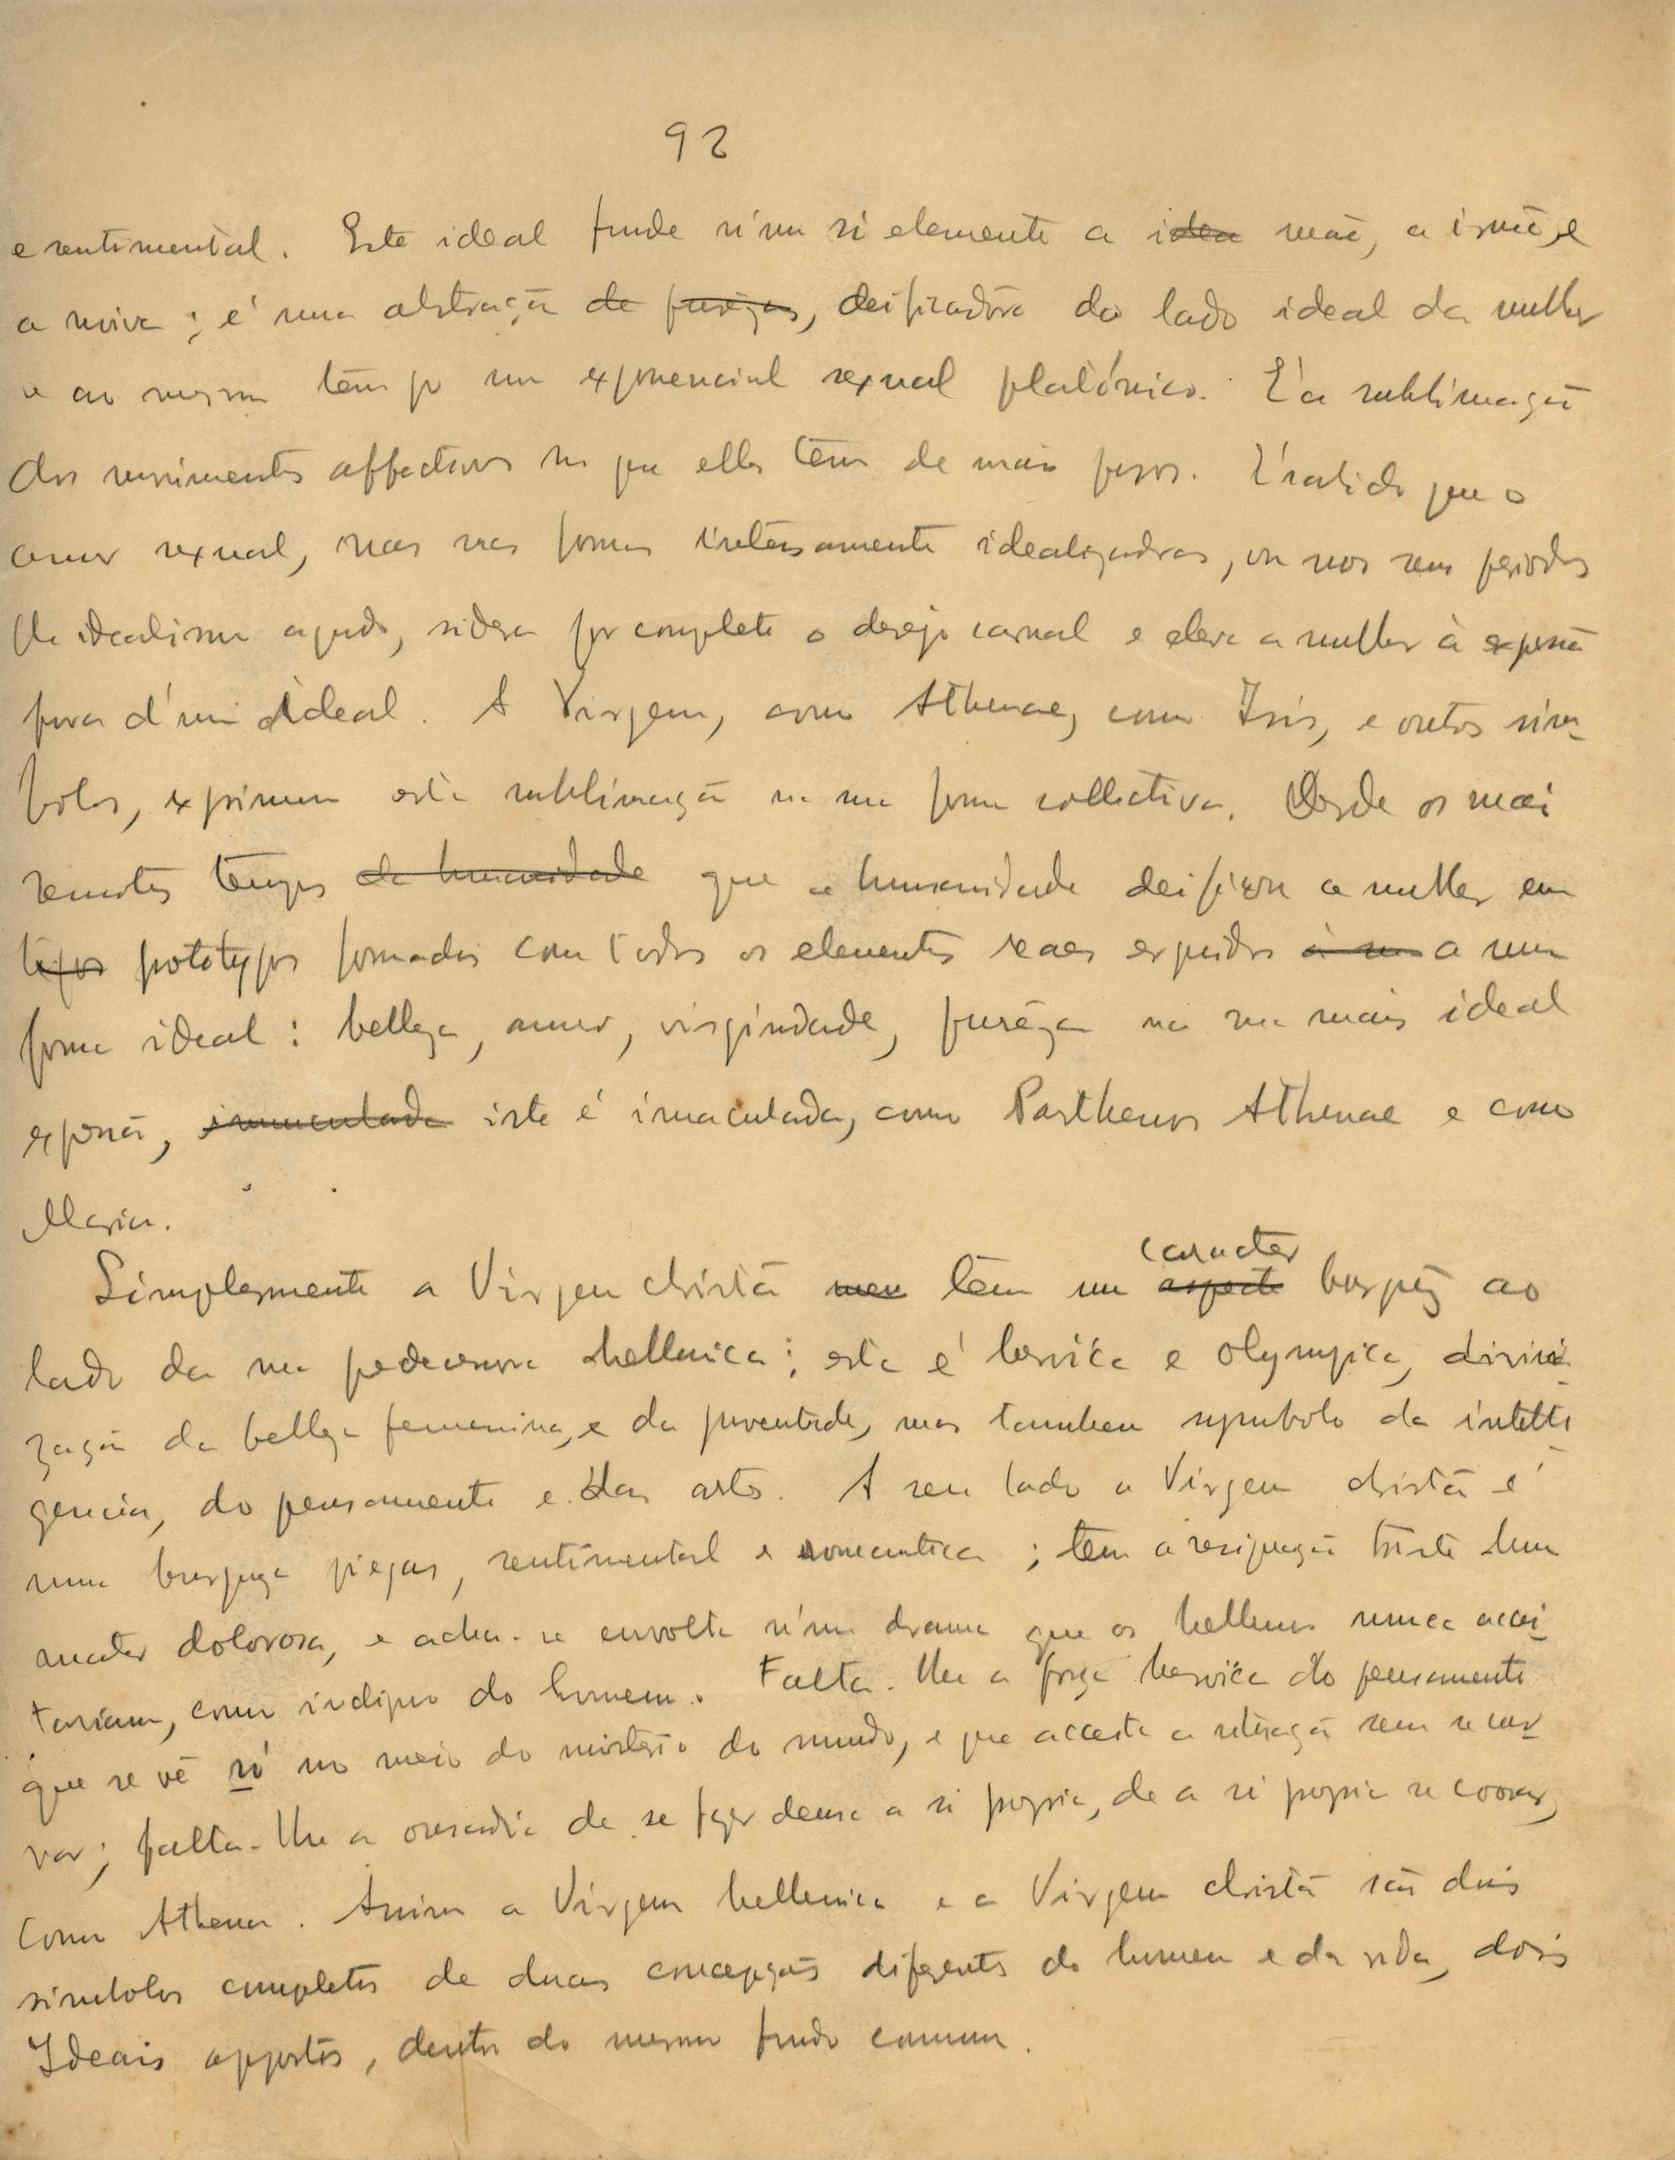 92
e sentimental. Este ideal funde n'um só elemento a idea mãe, a irmã, e
a noiva; é uma abstração de purêza, deificadôra do lado ideal da mulher
e ao mesmo têmpo um exponencial sexual platónico. É a sublimação
dos movimentos affectivos no que elles têm de mais puros. É sabido que o
amor sexual, mas nas formas intensamente idealizadras, ou nos seus periodos
de idealismo agudo, sidera por completo o desejo carnal e eleva a mulher à expressão
pura d'um ideal. A Virgem, como Athenae, como Isis, e outros sim-
bolos, exprimem esta sublimação na sua forma collectiva. Desde os mais
remotos tempos da humanidade que a humanidade deifica a mulher em
tipos prototypos formados com todos os elementos reaes erguidos a um a uma
forma ideal: belleza, amor, virgindade, purêza na sua mais ideal
expressão, immaculada isto é imaculada, como Parthenos Athenae e como
Maria.
Simplesmente a Virgem christã tem um aspecto caracter burguês ao
lado da sua predecessora hellenica; esta é heroica e olympica, divini-
zação da belleza femenina, e da juventude, mas tambem symbolo da intelli-
gencia, do pensamento e das artes. A seu lado a Virgem christã é
uma burgueza piegas, sentimental e romantica; tem a resignação triste duma
mater dolorosa, e acha-se envolta n'um drama que os hellenos nunca acei-
tariam, como indigno do homem. Falta-lhe a força heroica do pensamento
que se vê só no meio do misterio do mundo, e que acceita a situação sem se cur-
var; falta-lhe a ousadia de se fazer deusa a si propria, de a si propria se coroar,
como Athena. Assim a Virgem hellenica e a Virgem christã são dois
simbolos completos de duas concepções diferentes do homem e da vida, dois
Ideais oppostos, dentro do mesmo fundo comum.